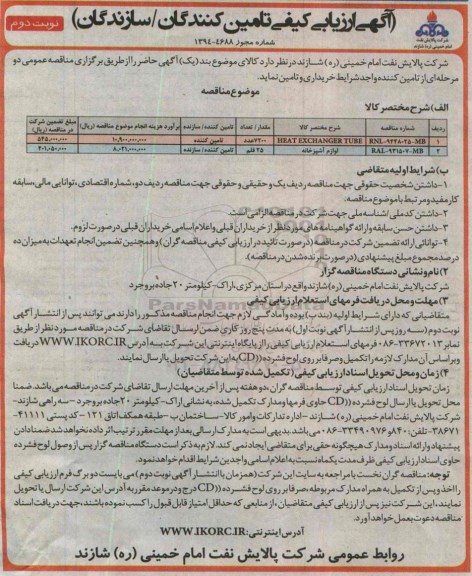 (آگهی ارزیابی کیفی تامین کنندگان/سازندگان)
نوبت دوم
شماره مجوز ۱۳۹۴،۴۶۸۸
شرکت پالایش نفت
امام خمینی (ره) شازند
شرکت پالایش نفت امام خمینی (ره) شازند در نظر دارد کالای موضوع بند (یک) آگهی حاضر را از طریق برگزاری مناقصه عمومی دو
مرحله ای از تامین کننده واجد شرایط خریداری و تامین نماید.
موضوع مناقصه
الف) شرح مختصر کالا
ردیف شماره مناقصه شرح مختصر کالا مقدار / تعداد تامین کننده / سازنده برآورد هزینه انجام موضوع مناقصه (ریال) مبلغ تضمین شرکت در مناقصه (ریال)
۱ RNL-9448025-MB HEAT EXCHANGER TUBE ۷۲۰۰ عدد تامین کننده ۱۰،۹۰۰،۰۰۰،۰۰۰ ۵۴۵،۰۰۰،۰۰۰
۲ RAL-9315007-MB لوازم آشپزخانه ۲۵ قلم تامین کننده / سازنده ۸،۰۲۱،۰۰۰،۰۰۰ ۴۰۱،۰۵۰،۰۰۰
ب) شرایط اولیه متقاضی
۱- داشتن شخصیت حقوقی جهت مناقصه ردیف یک و حقیقی و حقوقی جهت مناقصه ردیف دو، شماره اقتصادی، توانایی مالی، سابقه
کار مفید و مرتبط با موضوع مناقصه.
۲- داشتن کد ملی / شناسه ملی جهت شرکت در مناقصه الزامی است.
۳- داشتن حسن سابقه و ارائه گواهینامه های مورد نظر از خریداران قبلی و اعلام اسامی خریداران قبلی در صورت لزوم.
۴- توانائی ارائه تضمین شرکت در مناقصه (در صورت تائید در ارزیابی کیفی مناقصه گران) و همچنین تضمین انجام تعهدات به میزان ده
درصد مجموع مبلغ پیشنهادی (در صورت برنده شدن در مناقصه).
۲) نام و نشانی دستگاه مناقصه گزار
شرکت پالایش نفت امام خمینی (ره) شازند واقع در استان مرکزی، اراک- کیلومتر ۲۰ جاده بروجرد
۳) مهلت و محل دریافت فرمهای استعلام ارزیابی کیفی
متقاضیانی که دارای شرایط اولیه (بند ب) بوده و آمادگی لازم جهت انجام مناقصه مذکور را دارند می توانند پس از انتشار آگهی
نوبت دوم (سه روز پس از انتشار آگهی نوبت اول) به مدت پنج روز کاری ضمن ارسال تقاضای شرکت در مناقصه مورد نظر از طریق
نمابر ۰۸۶-۳۳۶۷۲۰۱۳ فرمهای استعلام ارزیابی کیفی را از پایگاه اینترنتی این شرکت به آدرس WWW.IKORC.IR دریافت
و بر اساس آن مدارک لازم را تکمیل و صرفا بر روی لوح فشرده (CD) به این شرکت تحویل یا ارسال نمایند.
۴) زمان و محل تحویل اسناد ارزیابی کیفی (تکمیل شده توسط متقاضیان)
زمان تحویل اسناد ارزیابی کیفی توسط مناقصه گران، دو هفته پس از آخرین مهلت ارسال تقاضای شرکت در مناقصه می باشد. ضمنا
محل تحویل یا ارسال لوح فشرده (CD) حاوی فرمها و مدارک تکمیل شده، به نشانی اراک- کیلومتر ۲۰ جاده بروجرد - سه راهی شازند-
شرکت پالایش نفت امام خمینی (ره) شازند - اداره تدارکات و امور کالا- ساختمان ب - طبقه همکف اتاق ۱۲۱ - کد پستی ۴۱۱۱۱-
۳۸۶۷۱- تلفن: ۸۴۰ و ۰۸۶-۳۳۴۹۰۹۷۶ می باشد. بدیهی است به مدارک ارسالی بعد از مهلت مقرر ترتیب اثر داده نخواهد شد ضمنا دادن
پیشنهاد و ارائه اسناد و مدارک هیچگونه حقی برای متقاضی ایجاد نمی کند. لازم به ذکر است دستگاه مناقصه گزار پس از وصول لوح فشرده
حاوی اسناد ارزیابی کیفی ظرف مدت یکماه نسبت به اعلام اسامی واجدین شرایط اقدام خواهد نمود.
توجه: مناقصه گران نخست با مراجعه به سایت این شرکت (همزمان با انتشار آگهی نوبت دوم) می بایست دو برگ فرم ارزیابی کیفی
را اخذ و پس از تکمیل به همراه مدارک مربوطه، صرفا بر روی لوح فشرده (CD) درج و در موعد مقرر به آدرس این شرکت ارسال یا تحویل
نمایند، این شرکت نیز پس از ارزیابی کیفی متقاضیان، از منابعی که حداقل امتیاز قابل قبول را کسب نموده باشند، جهت دریافت اسناد
مناقصه دعوت بعمل خواهد آورد.
آدرس اینترنتی: WWW.IKORC.IR
روابط عمومی شرکت پالایش نفت امام خمینی (ره) شازند